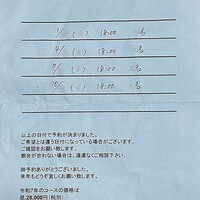 1/ ( ) 18:00 名
4/ ( ) 18:00 名
/ ( ) 18:00 名
10/ ( ) 18:00 名
以上の日付で予約が決まりました。
ご希望とは違う日付になっている場合がございます。
ご確認をお願い致します。
都合が合わない場合は、遠慮なくご相談下さい。
御予約ありがとうございました。
来年もどうぞ宜しくお願い致します。
令和7年のコースの価格は
昼.25,000円(税別)